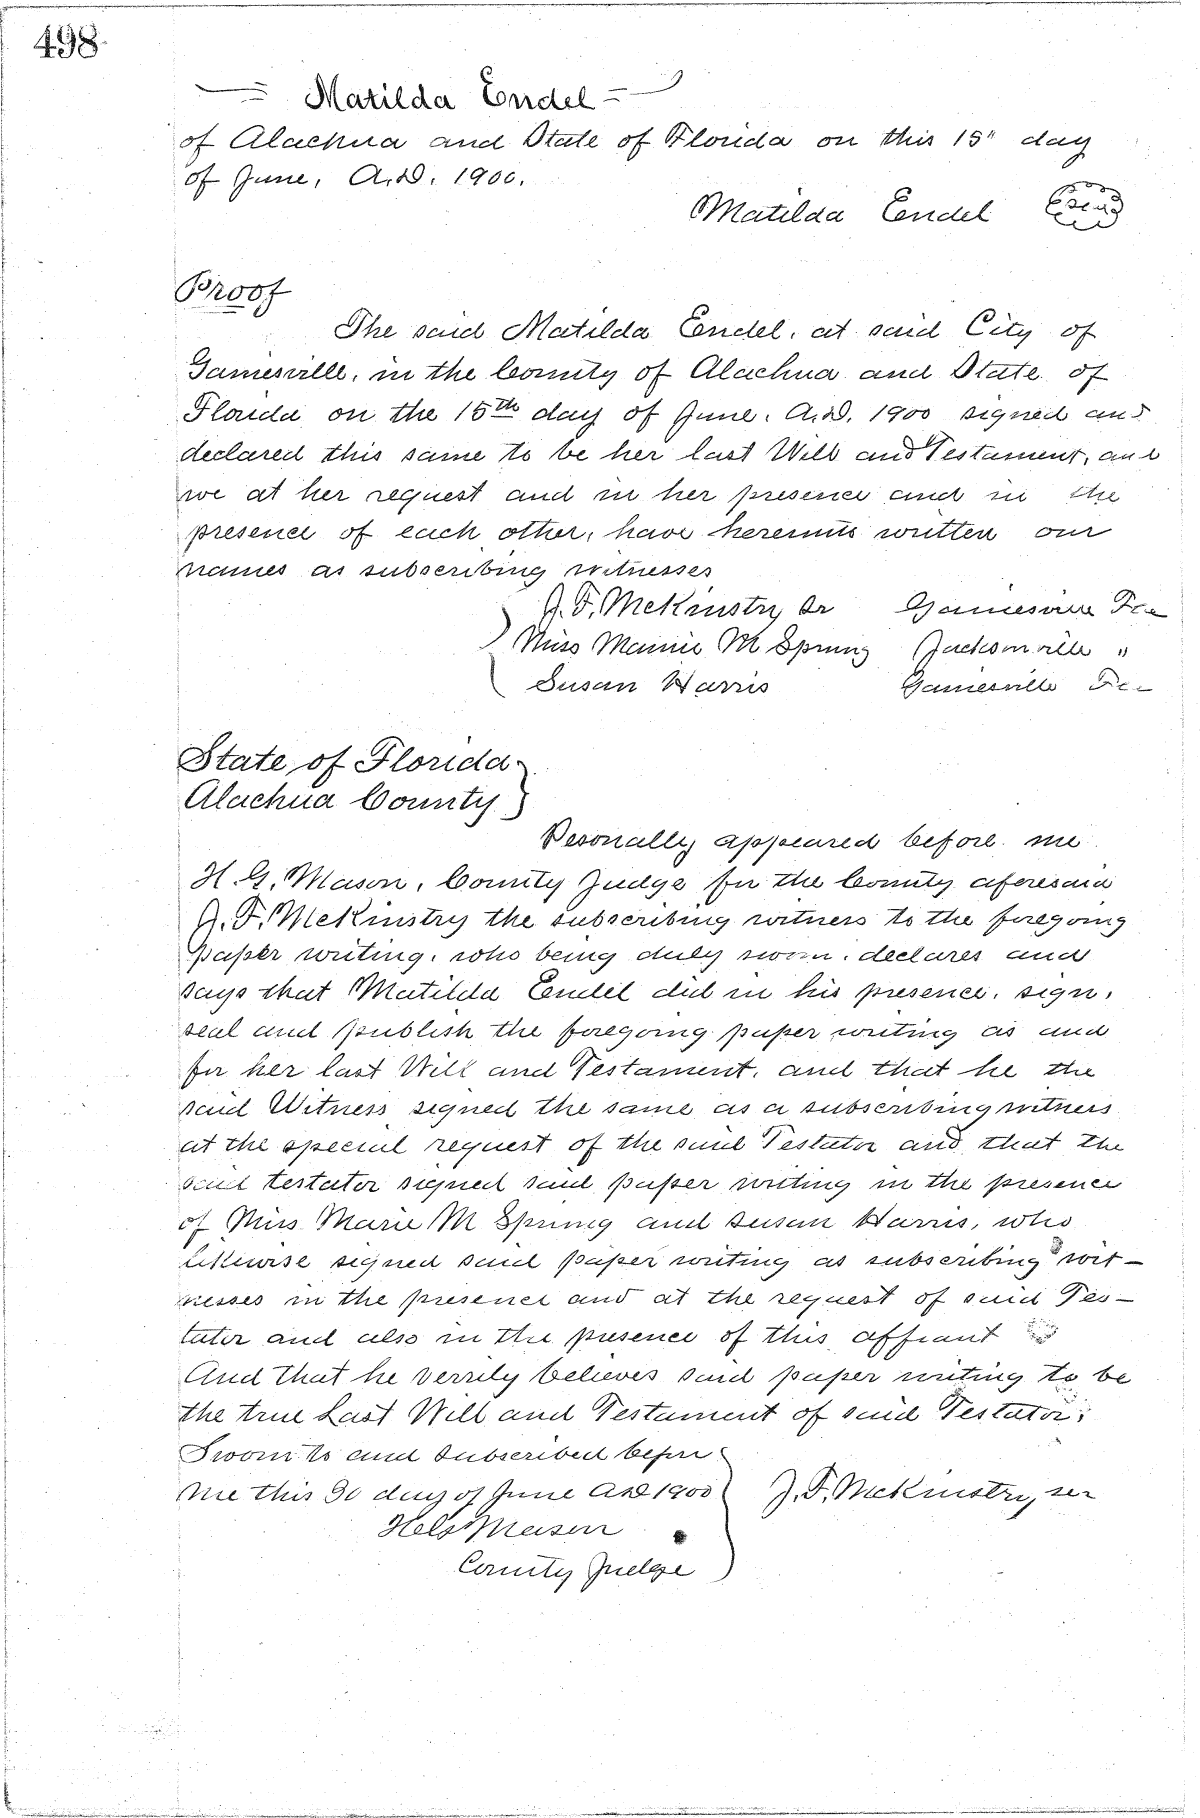 498
Matilda Endel
of Alachua and State of Florida on this 15" day
of June, A.D. 1900.
Matilda Endel (Seal)
Proof
The said Matilda Endel, at said City of
Gainesville, in the County of Alachua and State of
Florida on the 15th day of June. A.D. 1900 signed and
declared this same to be her last Will and Testament, and
we at her request and in her presence and in the
presence of each other, have hereunto written our
names as subscribing witnesses
J. F. McKinstry Sr Gainesville Fla
Miss Mamie M Sprung Jacksonville "
Susan Harris Gainesville Fla
State of Florida
Alachua County
Personally appeared before me
H. G. Mason, County Judge for the County aforesaid
J. F. McKinstry the subscribing witness to the foregoing
paper writing, who being duly sworn, declares and
says that Matilda Endel did in his presence, sign,
seal and publish the foregoing paper writing as and
for her last Will and Testament, and that he the
said Witness signed the same as a subscribing witness
at the special request of the said Testator and that the
said testator signed said paper writing in the presence
of Miss Marie M Sprung and Susan Harris, who
likewise signed said paper writing as subscribing wit-
nesses in the presence and at the request of said Tes-
tator and also in the presence of this affiant
And that he verrily believes said paper writing to be
the true Last Will and Testament of said Testator;
Sworn to and subscribed before
me this 30 day of June AD 1900 J. F. McKinstry, ser
Mason
County Judge